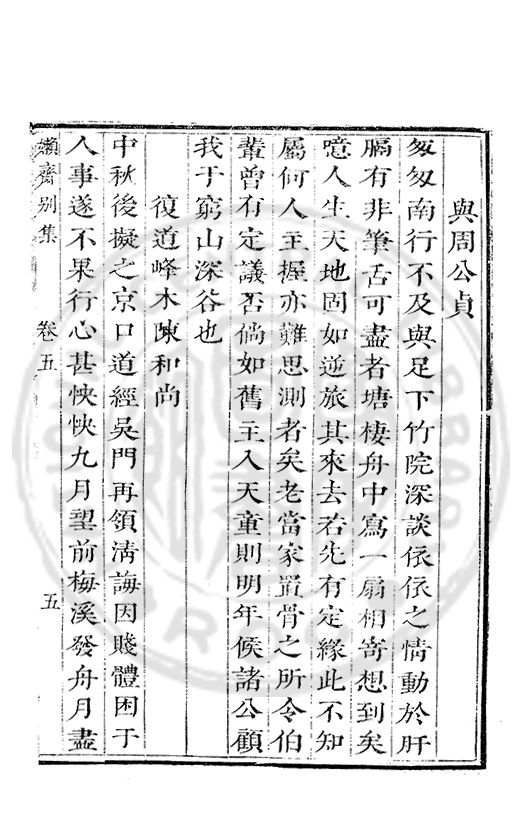 與周公貞
匆匆南行不及與足下竹院深談依依之情動於肝
膈有非筆舌可盡者塘棲舟中寫一扇相寄想到矣
噫人生天地固如逆旅其來去若先有定緣此不知
屬何人主握亦難思測者矣老當家置骨之所令伯
輩曾有定議否倘如舊主入天童則明年候諸公顧
我于窮山深谷也
復道峰木陳和尚
中秋後擬之京口道經吳門再領清誨因賤體困于
人事遂不果行心甚怏怏九月望前梅溪發舟月盡
嬾齋别集
卷五
五